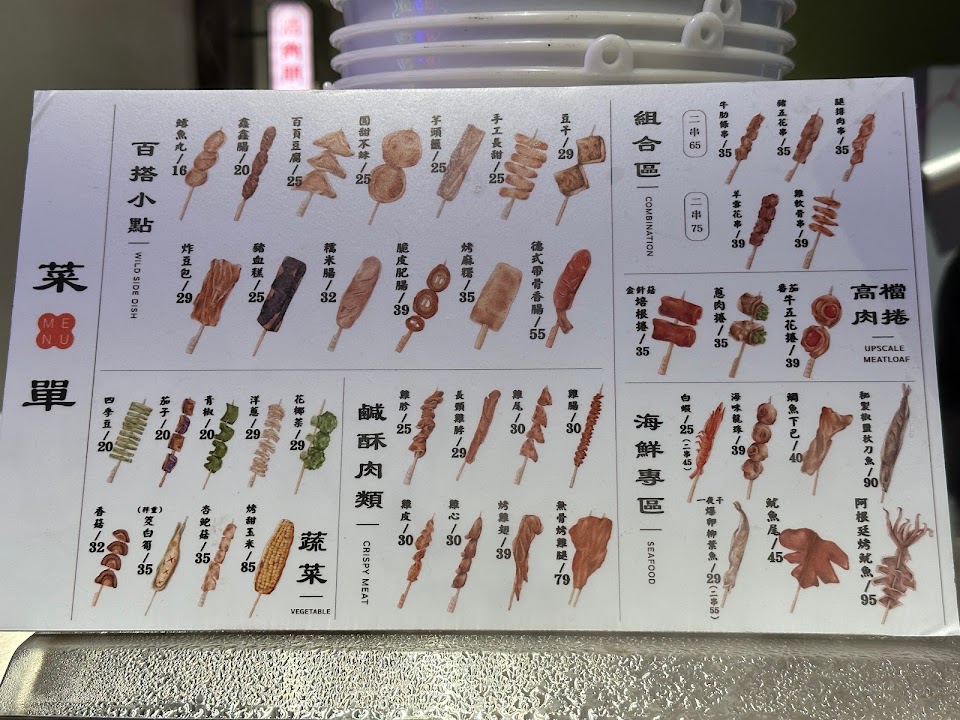 菜單
MENU
百搭小點
WILD SIDE DISH
鱈魚丸/16
鑫鑫腸/20
百頁豆腐/25
圓甜不辣/25
芋頭籤/25
手工長甜/25
豆干/29
炸豆包/29
豬血糕/25
糯米腸/32
脆皮肥腸/39
烤麻糬/35
德式帶骨香腸/55
組合區
COMBINATION
二串65
牛肋條串/35
豬五花串/35
腿排肉串/35
二串75
羊雪花串/39
雞軟骨串/39
高檔肉捲
UPSCALE
MEATLOAF
金針菇培根捲/35
蔥肉捲/35
番茄牛五花捲/39
蔬菜
VEGETABLE
四季豆/20
茄子/20
青椒/20
洋蔥/29
花椰菜/29
香菇/32
(秤重)筊白筍/35
杏鮑菇/35
烤甜玉米/85
鹹酥肉類
CRISPY MEAT
雞胗/25
長頸雞脖/29
雞尾/30
雞腸/30
雞皮/30
雞心/30
烤雞翅/39
無骨烤雞腿/79
海鮮專區
SEAFOOD
白蝦/25(二串45)
海味龍珠/39
鯛魚下巴/40
秘製椒鹽秋刀魚/90
一夜干爆卵柳葉魚/29(二串55)
魷魚尾/45
阿根廷烤魷魚/95